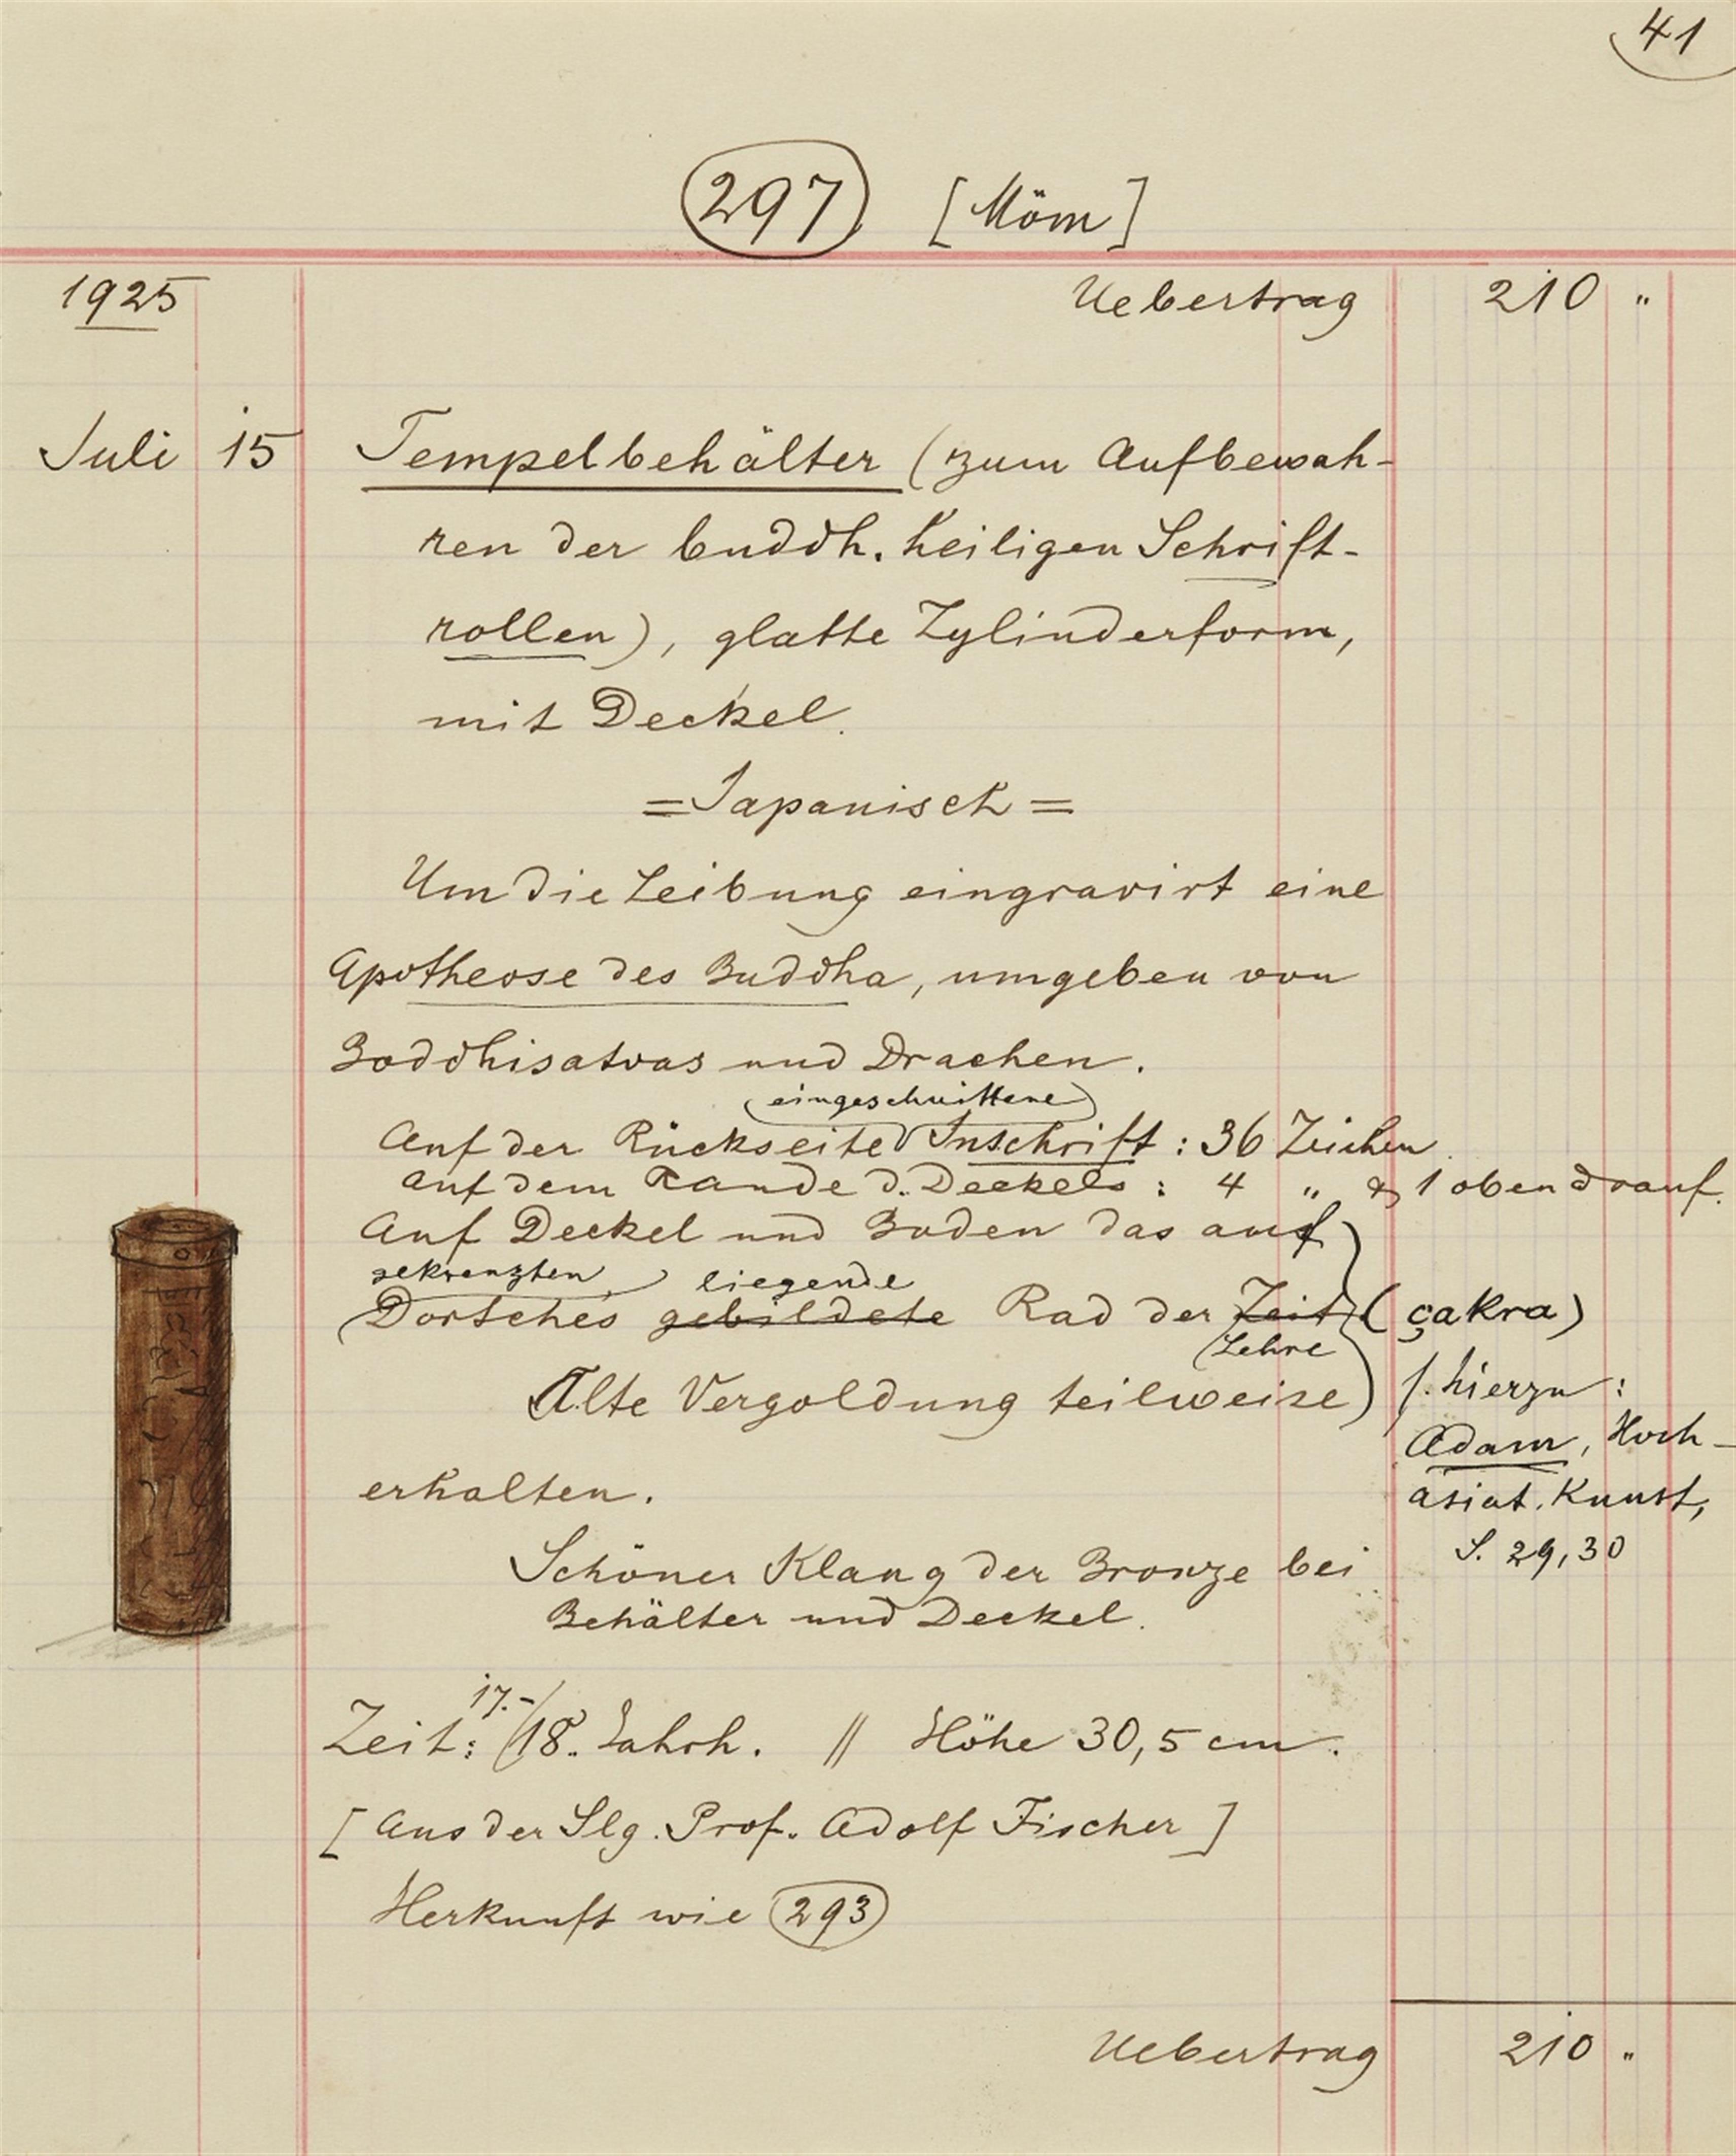 41
297 [Möm]
1925 Uebertrag 210 "
Juli 15 Tempelbehälter (zum Aufbewah-
ren der buddh. heiligen Schrift-
rollen), glatte Zylinderform,
mit Deckel.
=Japanisch=
Um die Leibung eingravirt eine
Apotheose des Buddha, umgeben von
Boddhisatvas und Drachen.
eingeschnittene
Auf der Rückseite Inschrift: 36 Zeichen.
auf dem Rande d. Deckels: 4 " & 1 oben drauf.
Auf Deckel und Boden das auf
gekreuzten liegende
Dortsches gebildete Rad der Zeit (çakra)
Lehre
Alte Vergoldung teilweise
s. hierzu:
Adam, Hoch-
erhalten.
asiat. Kunst,
S. 29,30
Schöner Klang der Bronze bei
Behälter und Deckel.
17.-/
Zeit: 18. Jahrh. // Höhe 30,5 cm.
[Aus der Slg. Prof. Adolf Fischer]
Herkunft wie 293
Uebertrag 210 "